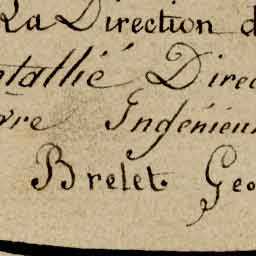 La Direction d
ntallié Direc
vre Ingénieur
Brelet. Geo